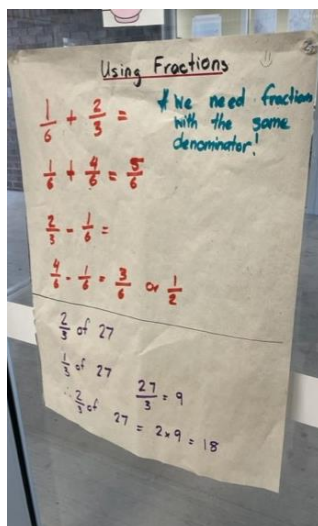 Using Fractions
1/6 + 2/3 =
* We need fractions
with the same
denominator!
1/6 + 4/6 = 5/6
2/3 - 1/6 =
4/6 - 1/6 = 3/6 or 1/2
2/3 of 27
1/3 of 27
27/3 = 9
∴ 2/3 of 27 = 2×9 = 18